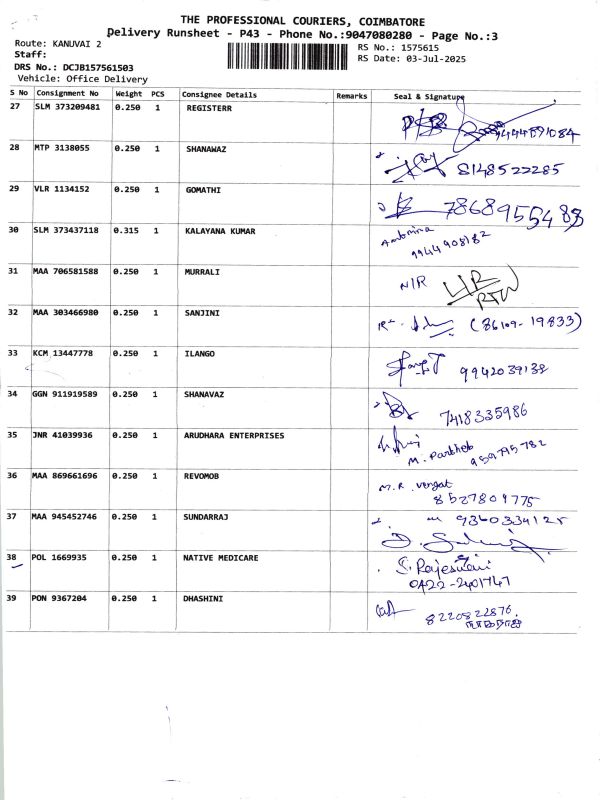 THE PROFESSIONAL COURIERS, COIMBATORE
Delivery Runsheet - P43 - Phone No.:9047080280 - Page No.:3
Route: KANUVAI 2
RS No.: 1575615
Staff:
RS Date: 03-Jul-2025
DRS No.: DCJB157561503
Vehicle: Office Delivery
S No Consignment No Weight PCS Consignee Details Remarks Seal & Signature
27 SLM 373209481 0.250 1 REGISTERR
28 MTP 3138055 0.250 1 SHANAWAZ 8148522285
29 VLR 1134152 0.250 1 GOMATHI
30 SLM 373437118 0.315 1 KALAYANA KUMAR
9944908182
31 MAA 706581588 0.250 1 MURRALI N/R
32 MAA 303466980 0.250 1 SANJINI (86109-19833)
33 KCM 13447778 0.250 1 ILANGO 9942039138
34 GGN 911919589 0.250 1 SHANAVAZ 7418335986
35 JNR 41039936 0.250 1 ARUDHARA ENTERPRISES
36 MAA 869661696 0.250 1 REVOMOB
8527809775
37 MAA 945452746 0.250 1 SUNDARRAJ 9360334125
38 POL 1669935 0.250 1 NATIVE MEDICARE S. Rajeswari
0422-2401747
39 PON 9367204 0.250 1 DHASHINI 8220822876